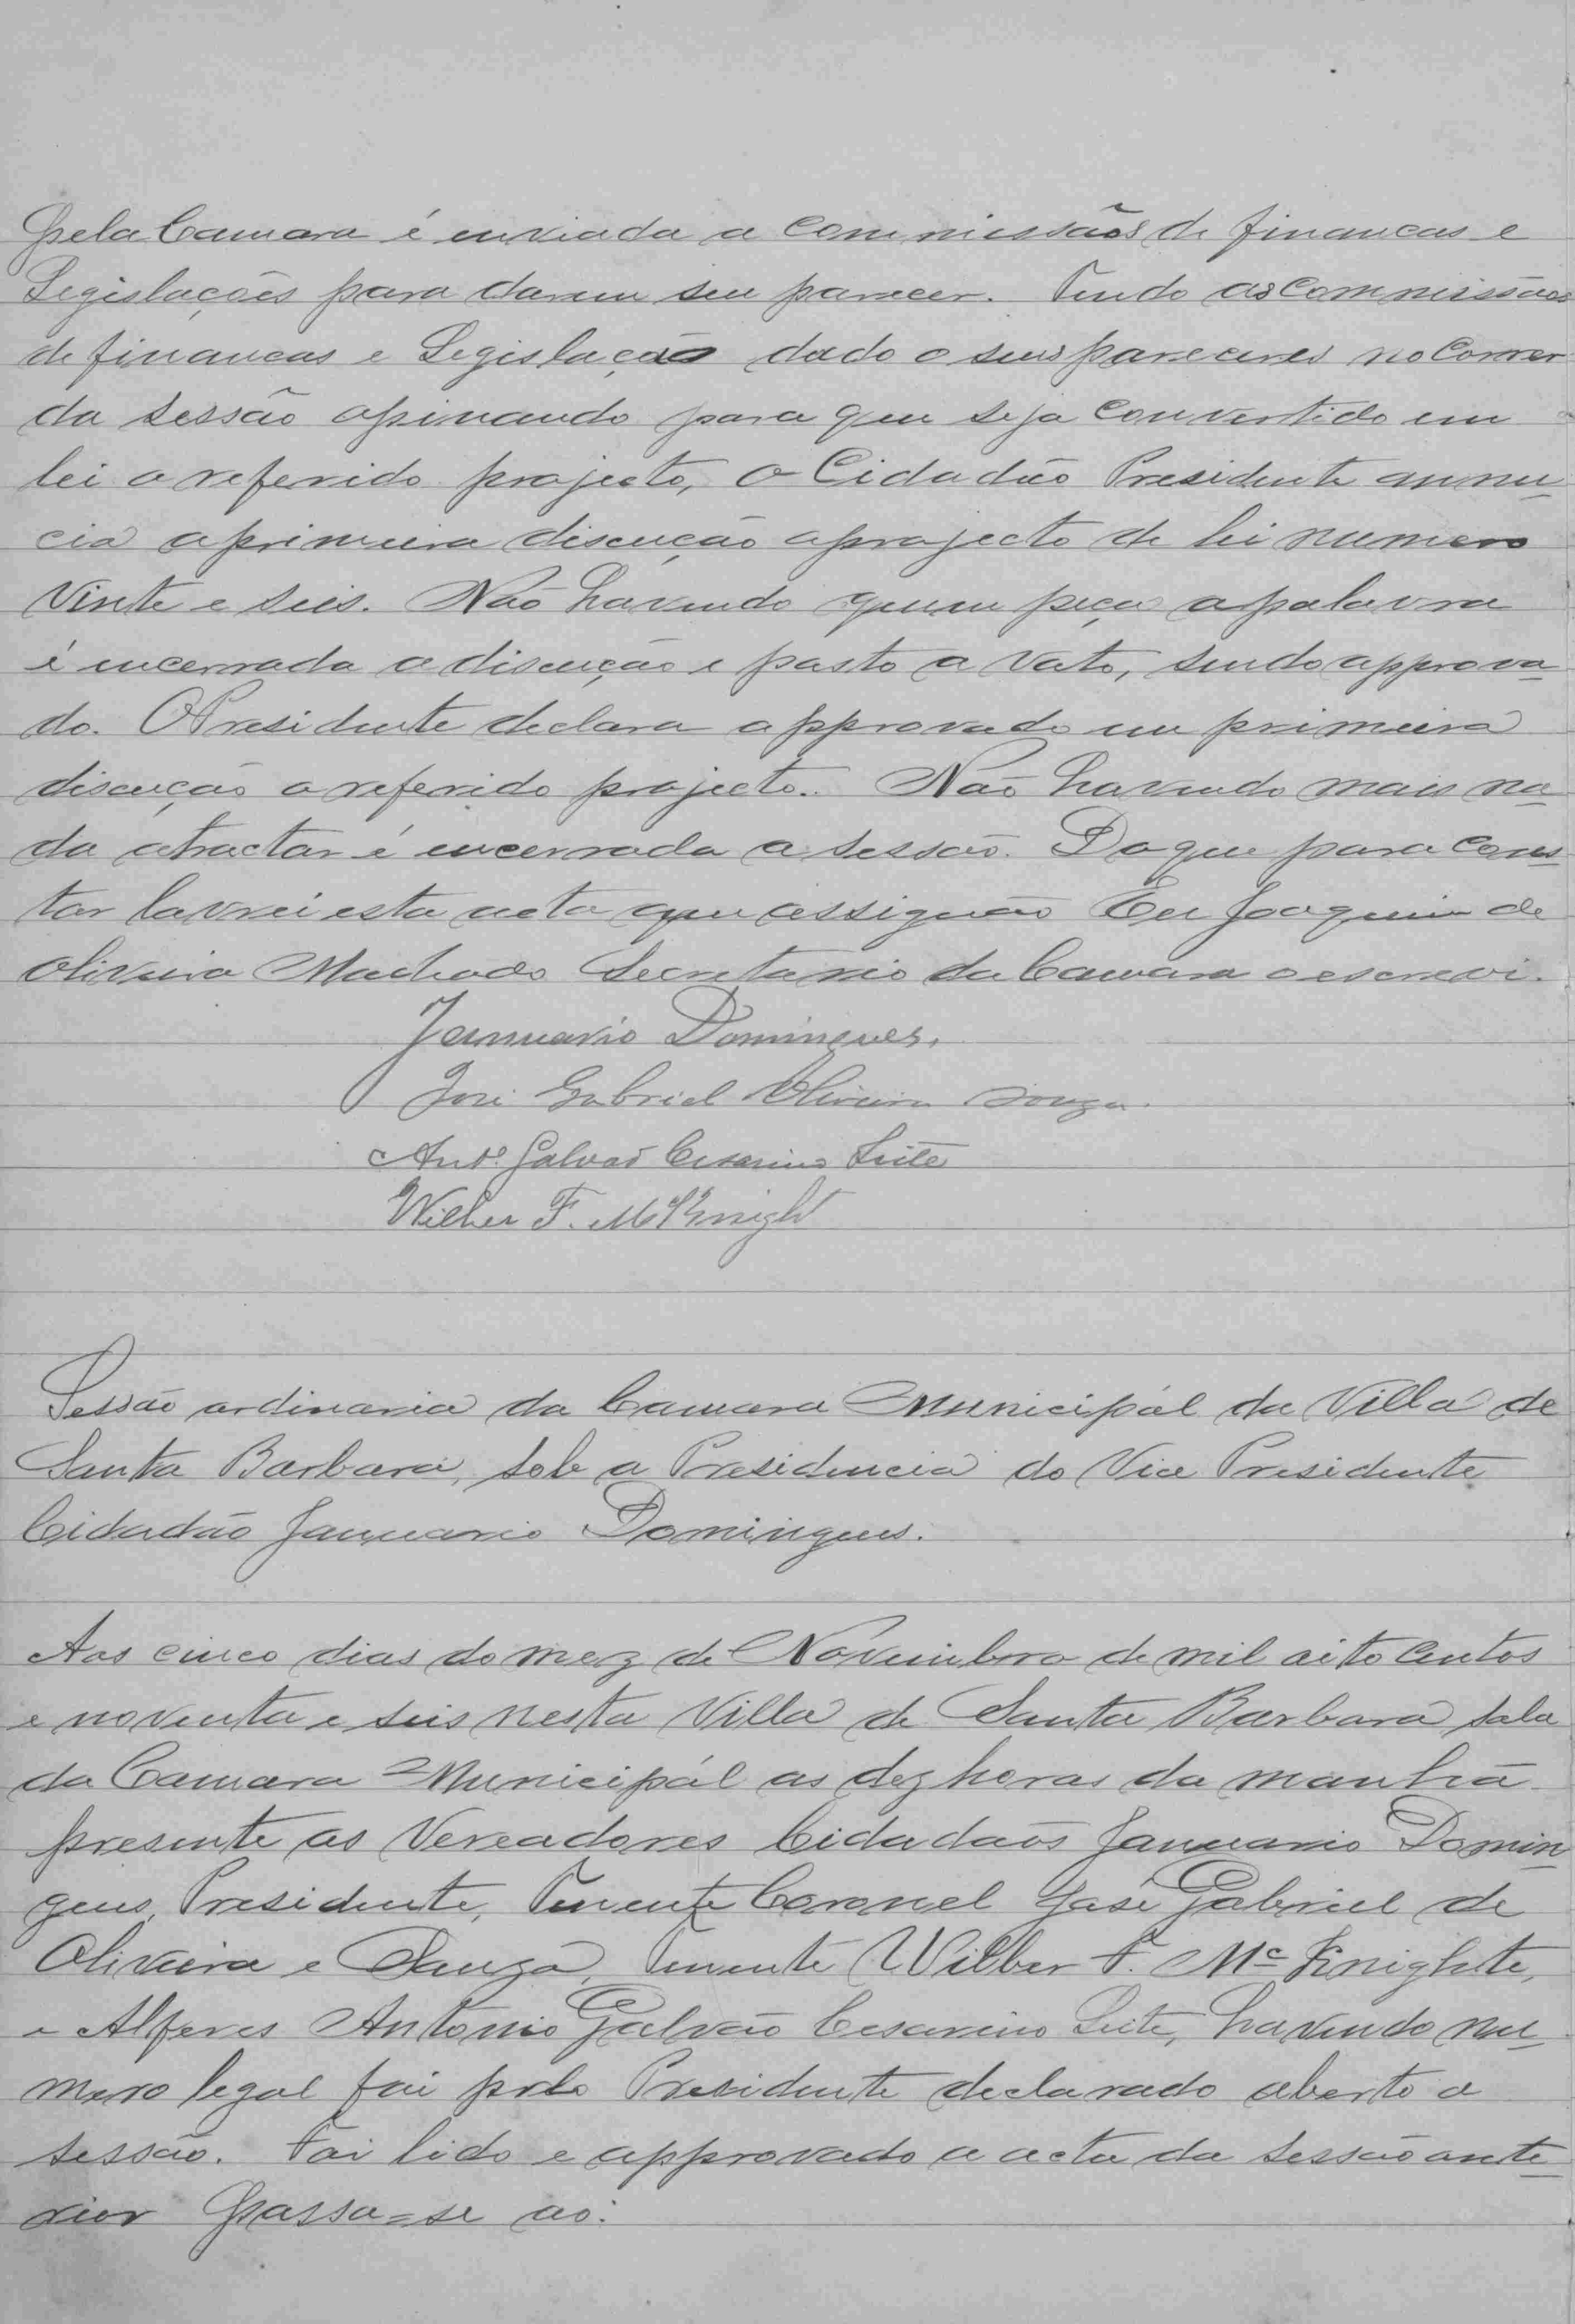 pela Camara é enviada a commissãos de financas e
Legislações para darem seu parecer. Tendo as commissãos
de financas e Legislação dado o seus pareceres no correr
da sessão opinando para que seja convertido em
lei o referido projecto, o Cidadão Presidente annu-
cia a primeira discução o projecto de lei numero
vinte e seis. Não havendo quem peça a palavra
é encerrada a discução e posto a voto, sendo approva-
do. O Presidente declara approvado em primeira
discução o referido projecto. Não havendo mais na-
da a tractar é encerrada a sessão. Do que para cons-
tar lavrei esta acta que assignão Eu Joaquim de
Oliveira Machado Secretario da Camara o escrevi.
Januario Domingues.
José Gabriel Oliveira Souza.
Anto. Galvão Cesarino Leite
Wilber F. McKnight
Sessão ordinaria da Camara Municipál da Villa de
Santa Barbara, sob a Presidencia do Vice Presidente
Cidadão Januario Domingues.
Aos cinco dias do mez de Novembro de mil oito centos
e noventa e seis nesta Villa de Santa Barbara sala
da Camara Municipál as dez horas da manhã
presente os Vereadores Cidadãos Januario Domin-
gues, Presidente, Tenente Coronel José Gabriel de
Oliveira e Souza, Tenente Wilber F. Mc Knighte,
e Alferes Antonio Galvão Cesarino Leite, havendo nu-
mero legal foi pelo Presidente declarado aberto a
sessão. Foi lido e approvado a acta da sessão ante-
rior Passa=se ao: